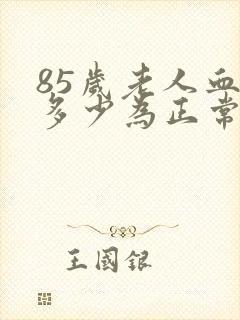 85歲老人血
多少為正常
王國銀